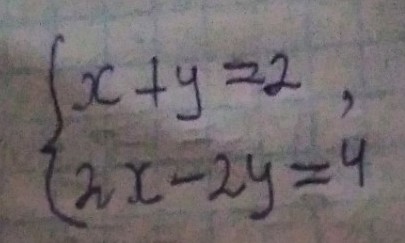 {x+y=2,
2x-2y=4